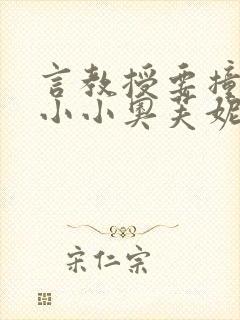 言教授要撞
小小奥芙妮
宋仁宗